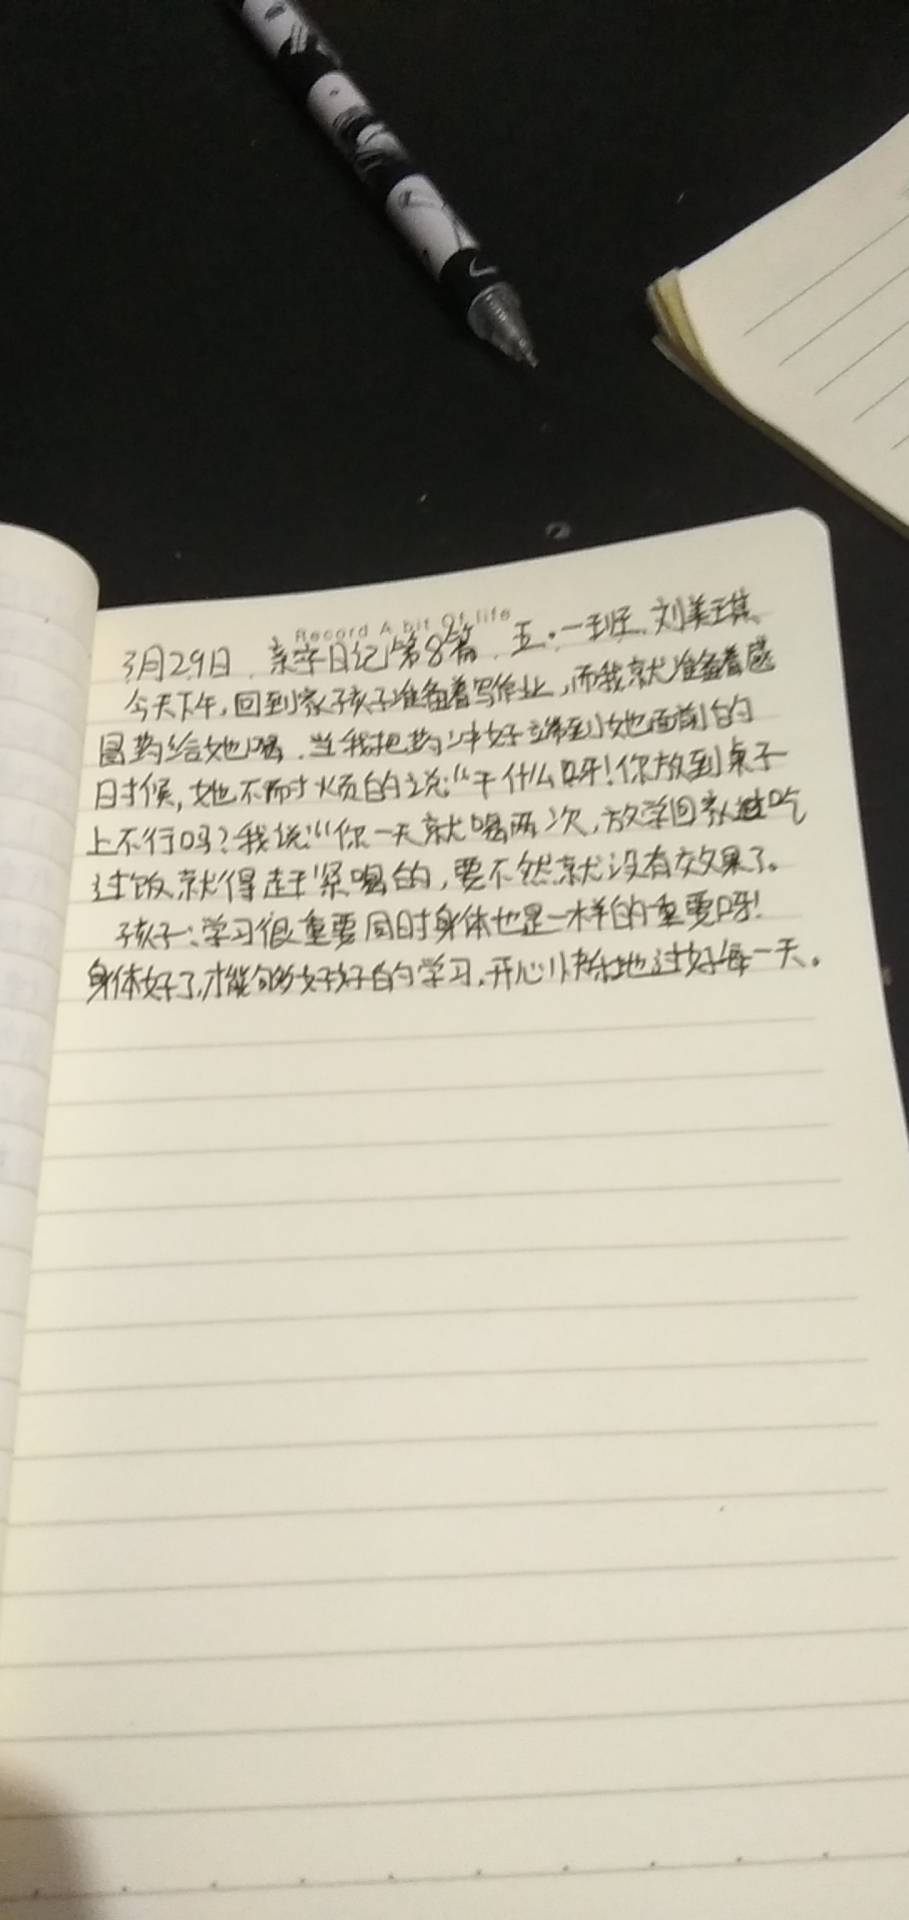 Record A bit Of life
3月29日 亲子日记第8篇 五·一班 刘美琪
今天下午,回到家孩子准备着写作业,而我就准备着感
冒药给她喝.当我把药冲好端到她面前的
时候,她不耐烦的说:“干什么呀!你放到桌子
上不行吗?我说:“你一天就喝两次,放学回家吃
过饭就得赶紧喝的,要不然就没有效果了。
孩子:学习很重要同时身体也是一样的重要呀!
身体好了,才能够好好的学习.开心快乐地过好每一天。